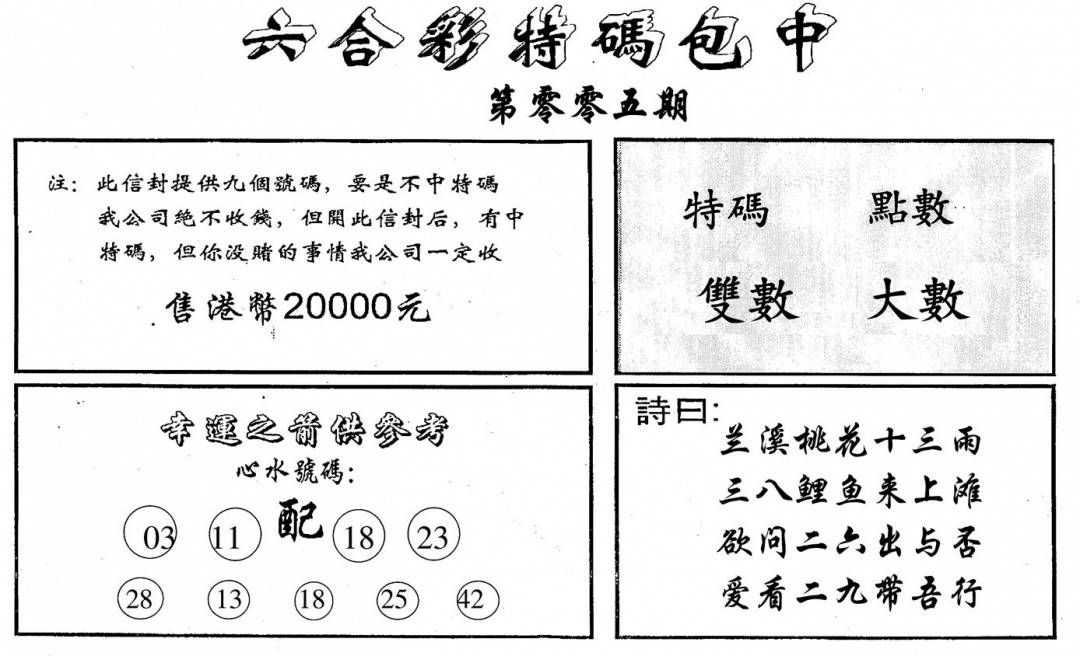 六合彩特碼包中
第零零五期
注：此信封提供九個號碼，要是不中特碼
我公司絕不收錢，但開此信封后，有中
特碼，但你没賭的事情我公司一定收
售港幣20000元
特碼 點數
雙數 大數
幸運之箭供參考
心水號碼：
03 11 配 18 23
28 13 18 25 42
詩曰：
兰溪桃花十三雨
三八鲤鱼来上滩
欲问二六出与否
爱看二九帶吾行